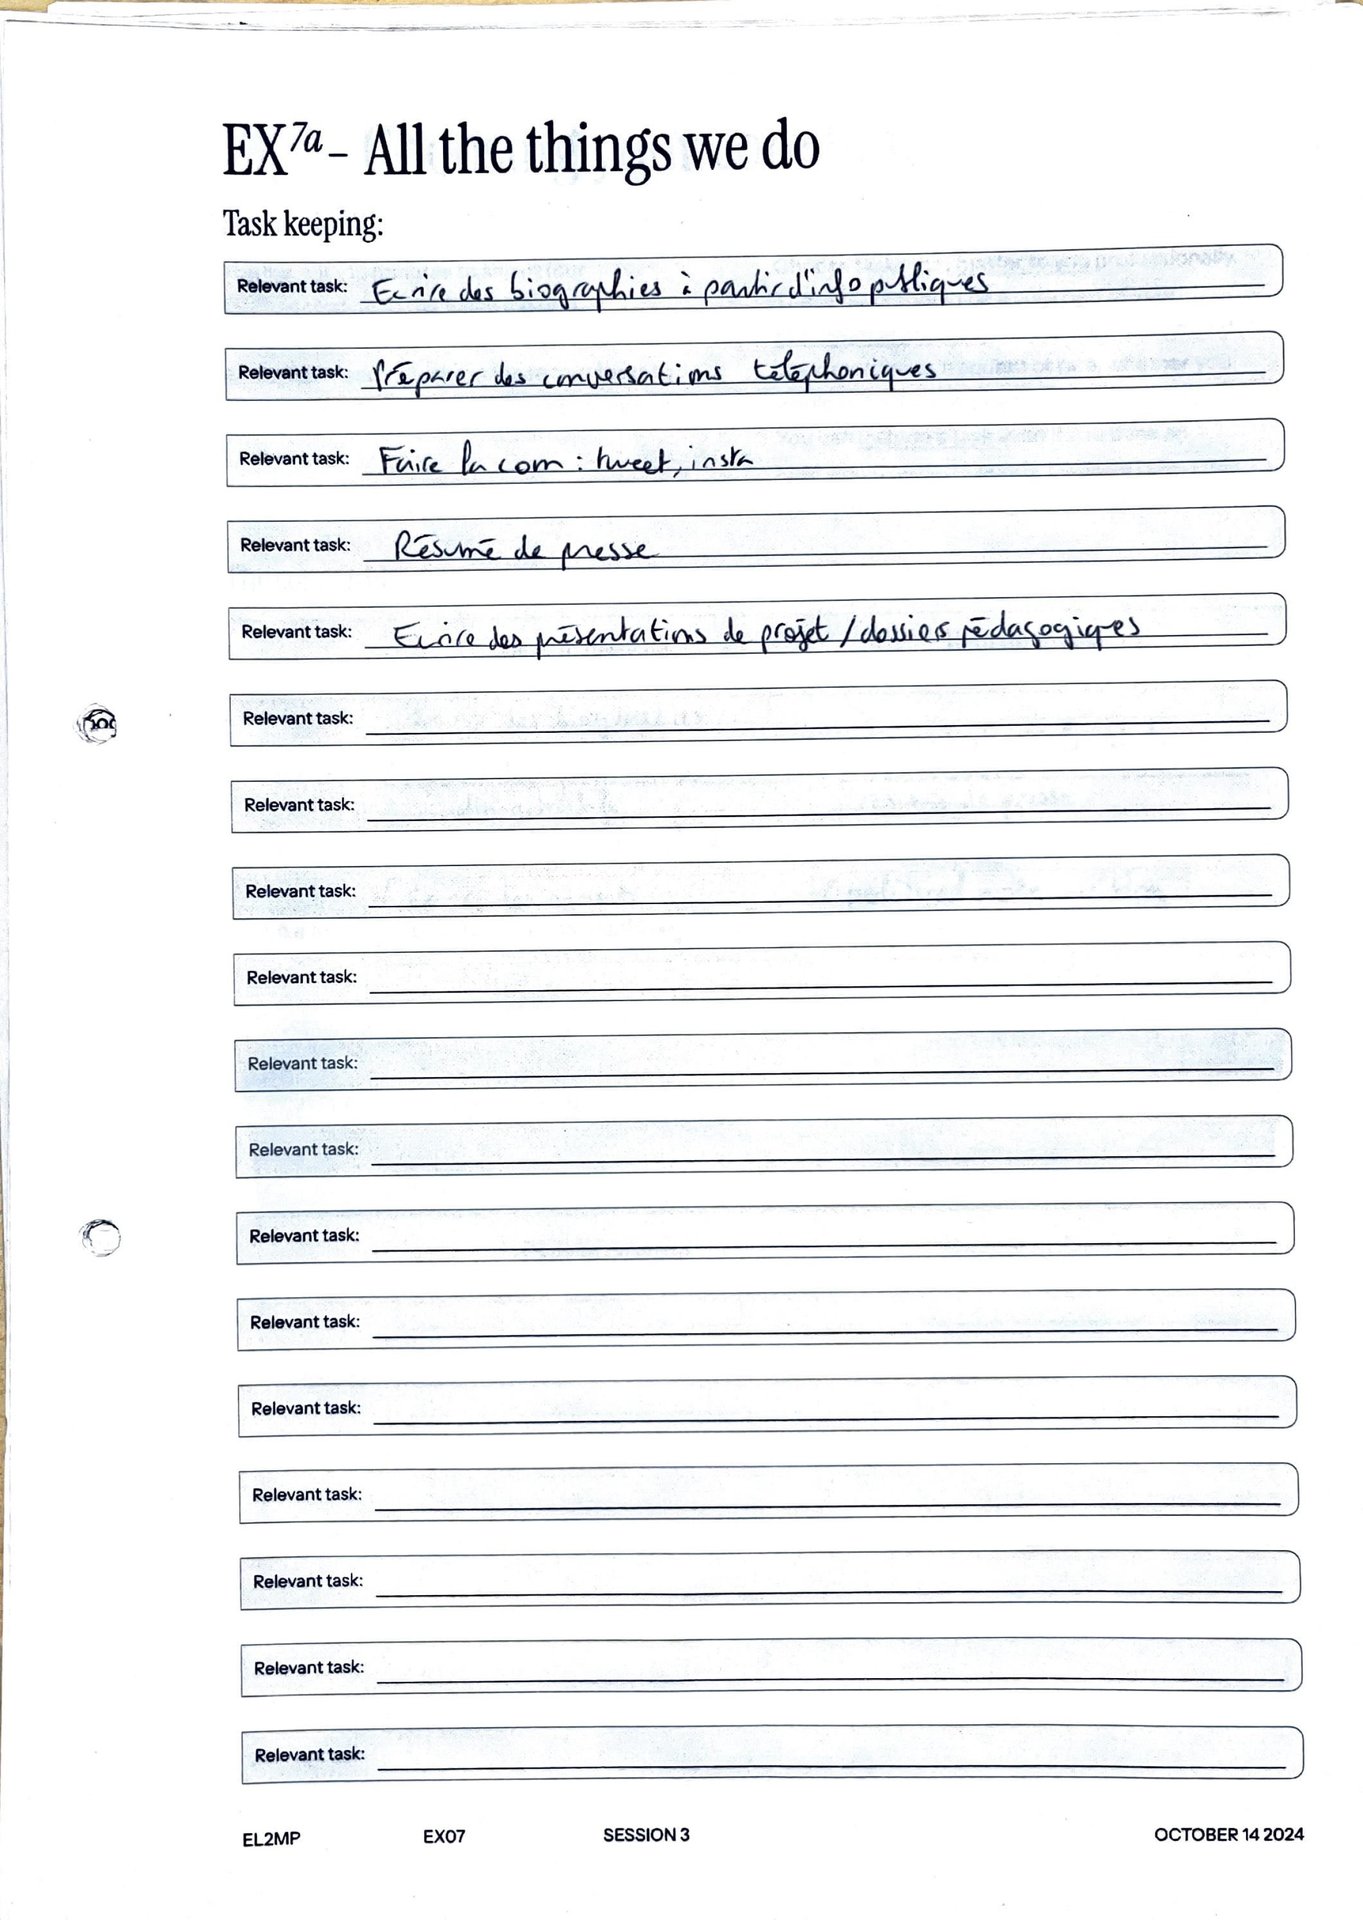 EX7a – All the things we do
Task keeping:
Relevant task: Ecrire des biographies à partir d'info publiques
Relevant task: Préparer des conversations téléphoniques
Relevant task: Faire la com : tweet, insta
Relevant task: Résumé de presse
Relevant task: Ecrire des présentations de projet / dossiers pédagogiques
Relevant task:
Relevant task:
Relevant task:
Relevant task:
Relevant task:
Relevant task:
Relevant task:
Relevant task:
Relevant task:
Relevant task:
Relevant task:
Relevant task:
Relevant task:
EL2MP EX07 SESSION 3 OCTOBER 14 2024